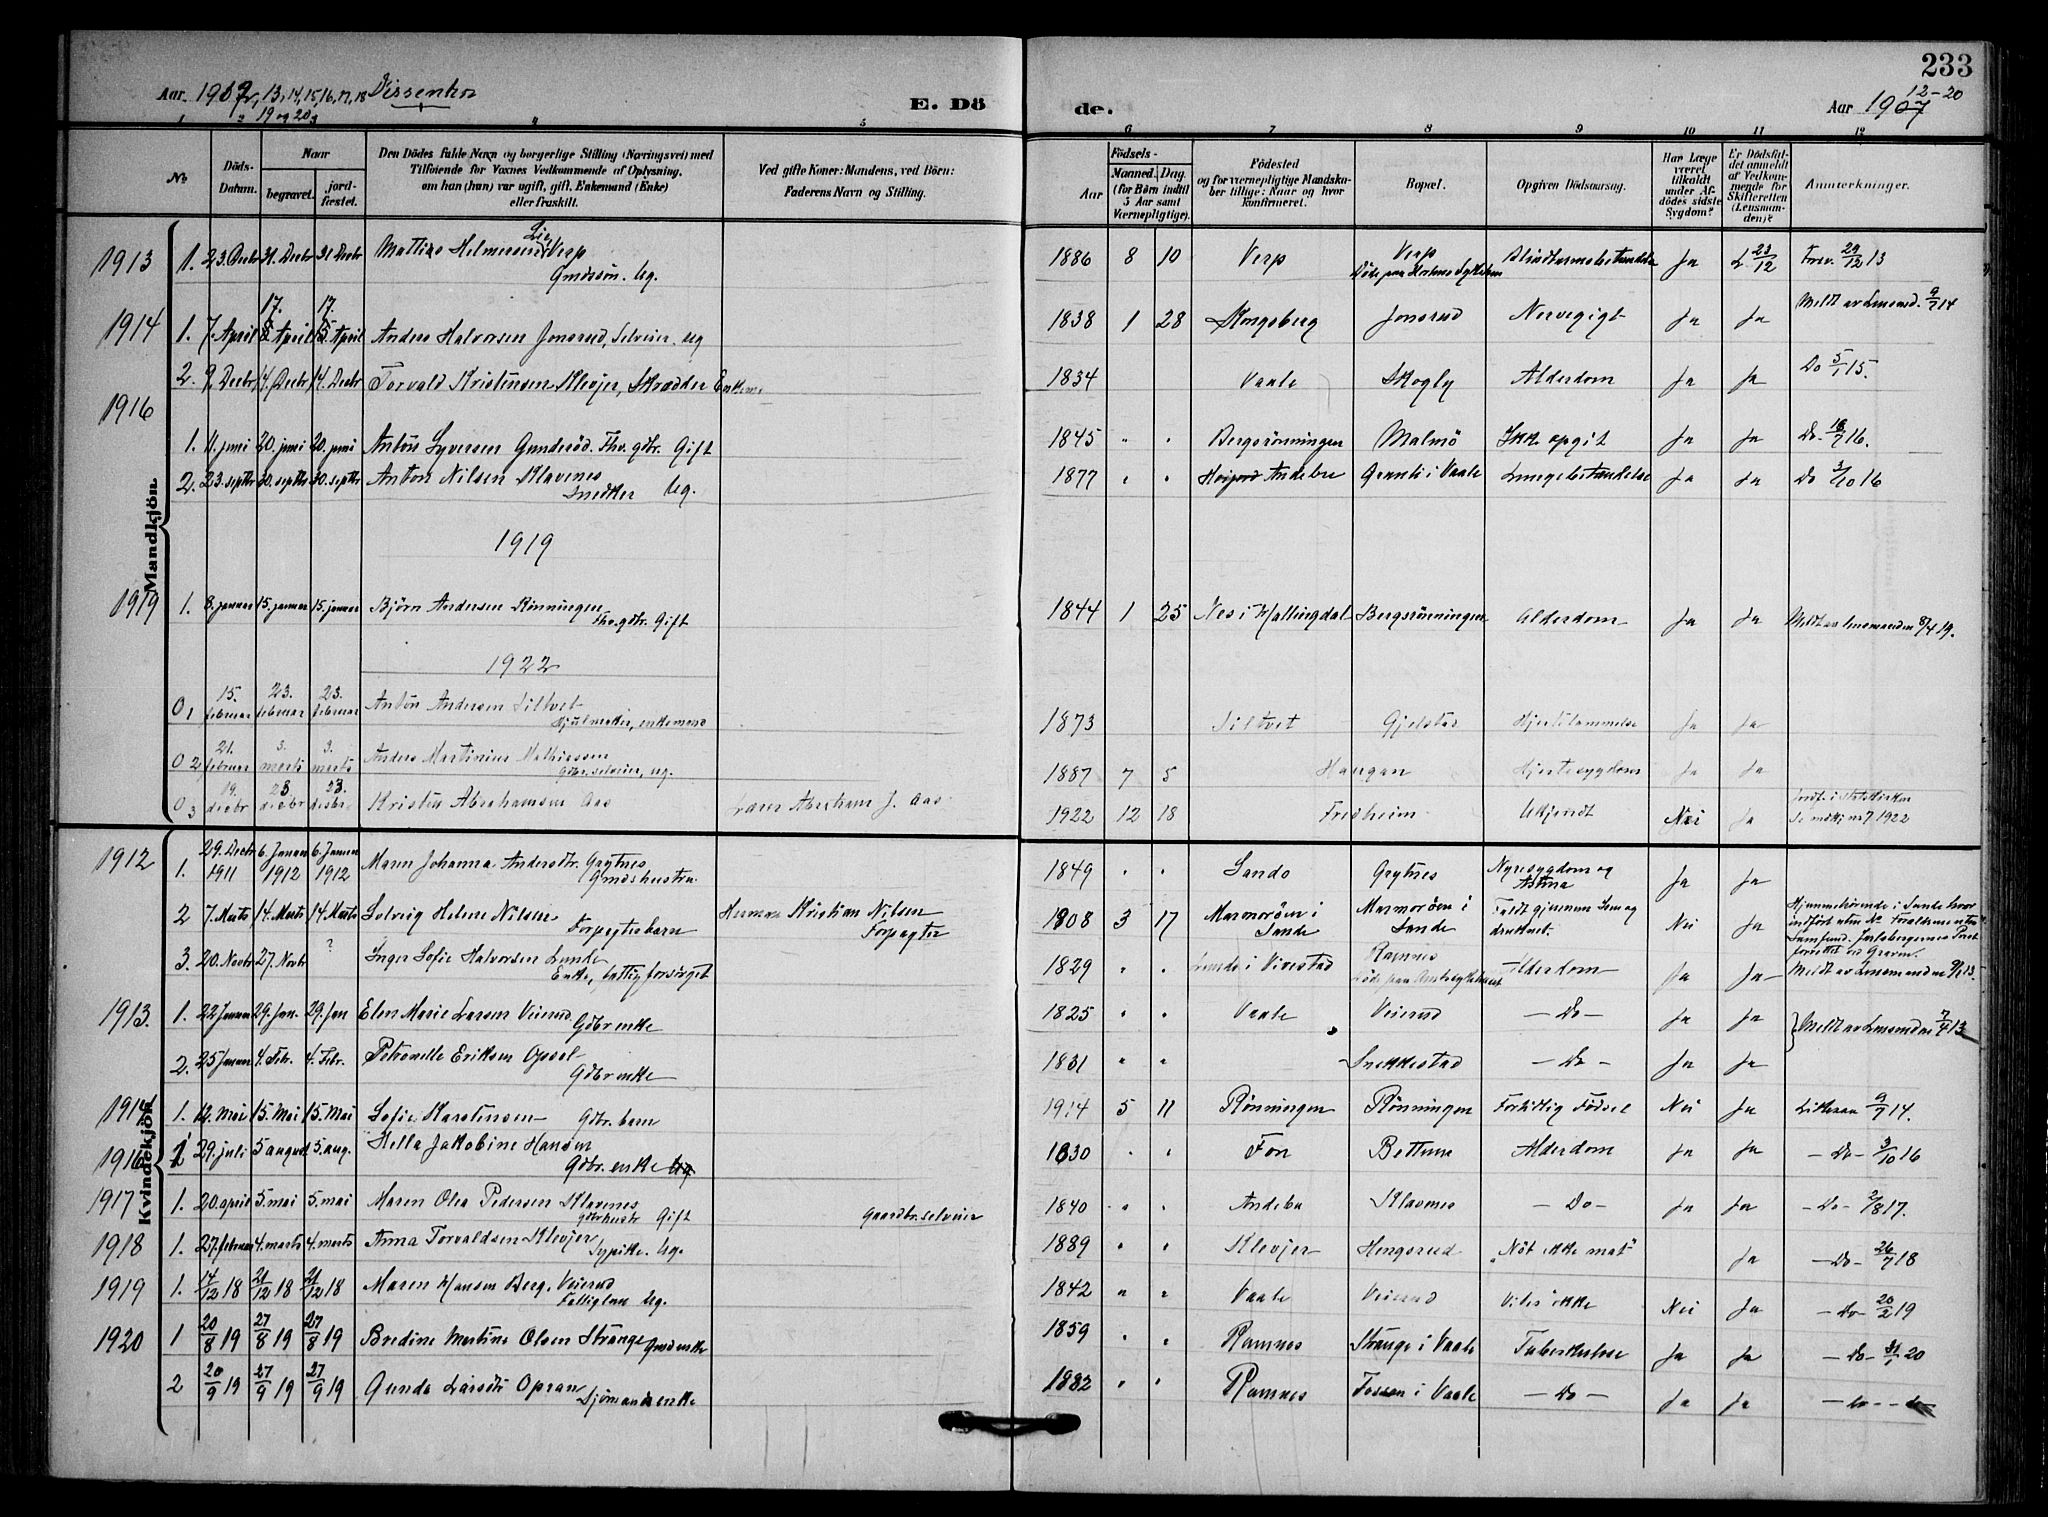 233
Aar 1912, 13, 14, 15, 16, 17, 18 Dissenter
19 og 20
E. Dö
de.
Aar 1907 12-20
1 2 3 4 5
6 7 8 9 10 11 12
No
Döds-Datum.
Naar
begravet.
jord-fæstet.
Den Dödes fulde Navn og borgerlige Stilling (Næringsvei) med
Tilföiende for Voxnes Vedkommende af Oplysning,
om han (hun) var ugift, gift, Enkemand (Enke)
eller fraskilt.
Ved gifte Koner: Mandens, ved Börn:
Faderens Navn og Stilling.
Födsels-
Aar
Maaned. Dag.
(for Börn indtil
5 Aar samt
Værnepligtige).
Födested
og for værnepligtige Mandska-
ber tillige: Naar og hvor
konfirmeret.
Bopæl.
Opgiven Dödsaarsag.
Har Læge
været
tilkaldt
under Af-
dödes sidste
Sygdom?
Er Dödsfal-
det anmeldt
af Vedkom-
mende for
Skifteretten
(Lensman-
den)?
Anmærkninger.
Mandkjön.
1913 1. 23. Decbr 31. Decbr 31 Decbr Mathias Helmersen Lie Verp 1886 8 10 Verp Verp Blindtarmsbetændelse Ja L 23/12 29/12 13
Gmdssön. Ug.
1914 1. 7. April 17. April 17. April Anders Halvorsen Jonsrud, Selveier. Ug 1838 1 28 Kongsberg Jonsrud Nervegigt Ja Ja Meldt av Lensmd. 9/7 14
2. 9. Decbr 14. Decbr 14. Decbr Torvald Kristensen Klevjer, Skrædder Enkem. 1834 Vaale Skogly Alderdom Ja Ja Do 5/1 15.
1916
1. 11. juni 20. juni 20. juni Anton Syversen Gunderöd. Fhv. gdbr. Gift 1845 " " Bergsrönningen Malmö Ikke opgit Ja Ja Do 16.
2. 23. septbr 30. septbr 30. septbr Anton Nilsen Klavenes 1877 " " Andebu i Vaale Lungebetændelse Ja Ja Do 3/10 16
Snedker Ug.
1919
1919 1. 8. januar 15. januar 15. januar Björn Andersen Rönningen 1844 1 25 Nes i Hallingdal Bergsrönningen Alderdom Ja Ja Meldt av lensmanden 8/4 19.
Fhv. gdbr. Gift
1922
0 1 15. februar 23. februar 23. februar Anton Andersen Siltvet 1873 Siltvet Gjelstad Hjertelammelse Ja Ja
Hjulmaker, enkemand
0 2 21. februar 3. marts 3. marts Anders Martinius Mathiassen 1887 7 5 Haugan Hjertesygdom Ja Ja
Gdbr. selveier, ug.
0 3 19. decbr 23. decbr 23. decbr Kristen Abrahamsen Aas Lærer Abraham J. Aas 1922 12 18 Fredheim Ukjendt Nei Ja Jordf. i Statskirken
Se mdkj. no 7 1922
Kvindekjön.
1912 1. 29. Decbr 1911 6. Januar 1912 6. Januar 1912 Maren Johanna Andersdtr. Grytnes 1849 " " Sande Grytnes Nyresygdom og Astma Ja Ja
Gmdshustru.
2 7. Marts 14. Marts 14. Marts Solveig Helene Nilsen Herman Kristian Nilsen 1908 3 17 Marmoröen i Sande Marmoröen i Sande Faldt gjennem Isen og druknet. Nei Ja Hjemmehörende i Sande hvor
Forpagterbarn Forpagter
indfört uten No.
3. 20. Novbr 27. Novbr ? Inger Sofie Halvorsen Lunde 1829 " " Lunde i Vivestad Ramnes Alderdom Ja Ja Meldt av Lensmanden 13.
Enke, fattigforsörget
1913. 1. 22 Januar 29. Jan. 29. Jan Elen Marie Larsen Veierud 1825 " " Vaale Veierud — Do — Ja Ja Meldt av Lensmanden 7/4 13
Gdbr enke
2. 25 Januar 4. Febr. 4. Febr. Petronelle Eriksen Opsal 1831 " " Snekkestad — Do — Ja Ja
Gdbr enke
1914 1. 12. Mai 15. Mai 15. Mai Sofie Karstensen Gdbr. barn 1914 5 11 Rönningen Rönningen Fortidlig Födsel Nei Ja Likesaa 9/7 14.
1916 1 29. juli 5 august 5. aug. Hella Jakobine Hansen 1830 " " Fon Bettum Alderdom Ja Ja — Do — 3/10 16
Gdbr. enke Ug
1917 1. 20. april 5. mai 5. mai Maren Olea Pedersen Klavenes Gaardbr. selveier 1840 " " Andebu Klavenes — Do — Ja Ja — Do — 2/8 17.
Gdbrhustr Gift
1918 1. 27. februar 4. marts 4. marts Anna Torvaldsen Klevjer 1889 " " Klevjer Hengsrud "Nöt ikke mat" Ja — Do — 26/7 18
Sypike. Ug.
1919 1. 14/12 18 21/12 18 21/12 18 Maren Hansen Berg. Veierud 1842 " " Vaale Veierud Vites ikke Nei Ja — Do — 20/2 19
Fattiglem Ug.
1920 1 20/8 19 27/8 19 27/8 19 Bredine Martine Olsen Strange Gmdenke 1859 " " Ramnes Strange i Vaale Tuberkulose Ja Ja — Do — 31/1 20
2 20/9 19 27/9 19 27/9 19 Gunda Larsdtr Opran 1882 " " Ramnes Fossan i Vaale — Do — Ja Ja — do — — do —
Sjömandsenke